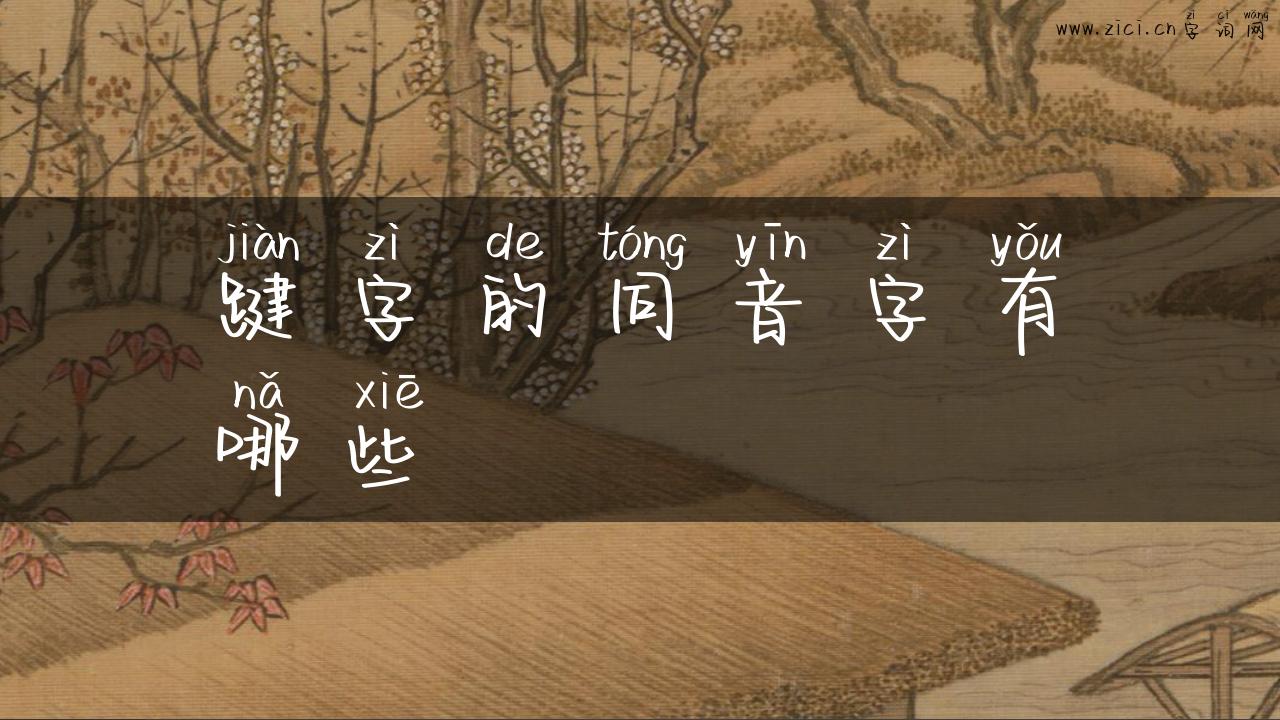 zì cí wǎng
www.zici.cn字词网
jiàn zì de tóng yīn zì yǒu
踺字的同音字有
nǎ xiē
哪些